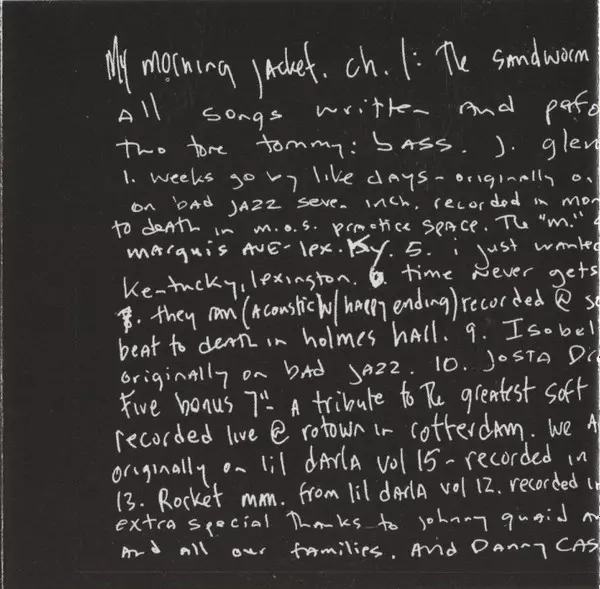 My morning jacket. ch. 1: The Sandworm
All songs written and pefo
Two tone tommy: bASS. J. glen
1. weeks go by like days - originally o
on bad jAZZ seven inch. recorded in mon
to death in m.o.s. practice space. The "m."
marquis AVE - lex. Ky. 5. i just wante
Kentucky, lexington. 6. time never gets
8. they ran (Acoustic w/ happy ending) recorded @ s
beat to death in holmes hAll. 9. Isobel
originally on bAd jAZZ. 10. JOSTA Dr
Five bonus 7"- A tribute to The greatest soft
recorded live @ rotown in rotterdam. we A
originally on lil dArlA vol 15 - recorded in
13. Rocket mAn. from lil dArlA vol 12. recorded i
extra special Thanks to johnny quaid A
And all our families. And Danny CAS